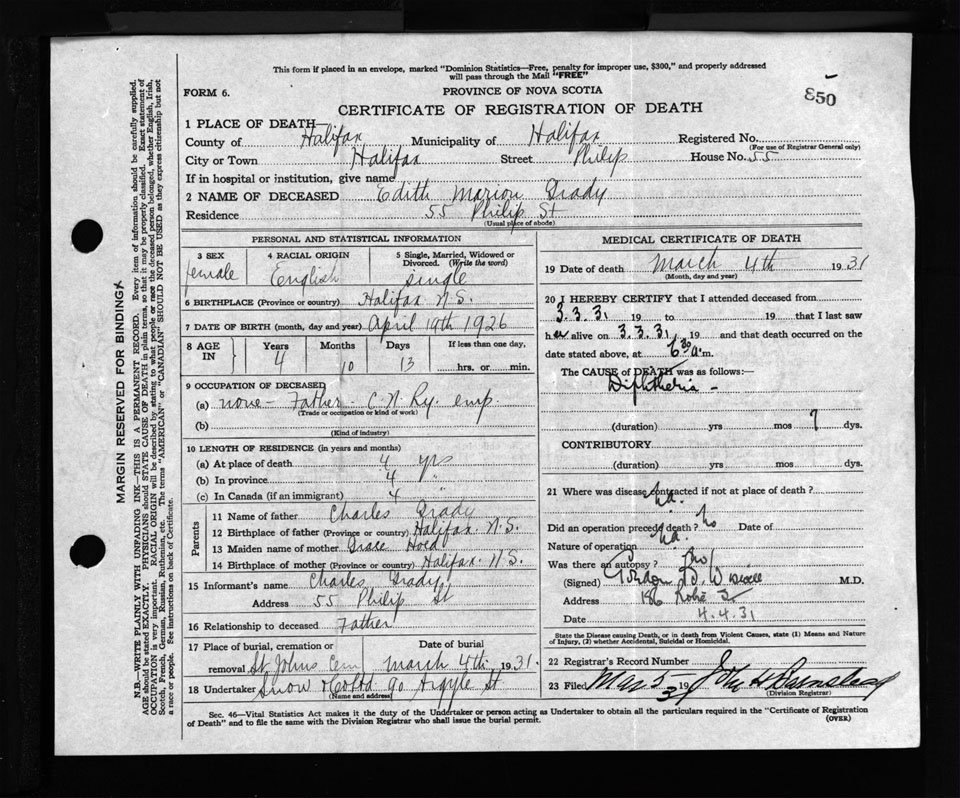 This form if placed in an envelope, marked "Dominion Statistics—Free, penalty for improper use, $300," and properly addressed
will pass through the Mail "FREE"
FORM 6.
PROVINCE OF NOVA SCOTIA
850
CERTIFICATE OF REGISTRATION OF DEATH
1 PLACE OF DEATH—
County of Halifax Municipality of Halifax Registered No.
(For use of Registrar General only)
City or Town Halifax Street Philip House No. 55
If in hospital or institution, give name
2 NAME OF DECEASED Edith Marion Grady
Residence 55 Philip St
(Usual place of abode)
PERSONAL AND STATISTICAL INFORMATION
3 SEX 4 RACIAL ORIGIN 5 Single, Married, Widowed or
Divorced. (Write the word)
female English single
6 BIRTHPLACE (Province or country) Halifax N.S.
7 DATE OF BIRTH (month, day and year) April 19th 1926
8 AGE IN Years Months Days If less than one day,
4 10 13 hrs. or min.
9 OCCUPATION OF DECEASED
(a) none - Father - C.N. Ry. emp.
(Trade or occupation or kind of work)
(b)
(Kind of industry)
10 LENGTH OF RESIDENCE (in years and months)
(a) At place of death 4 yrs
(b) In province 4 "
(c) In Canada (if an immigrant) 4 "
Parents
11 Name of father Charles Grady
12 Birthplace of father (Province or country) Halifax N.S.
13 Maiden name of mother Grace
14 Birthplace of mother (Province or country) Halifax N.S.
15 Informant's name Charles Grady
Address 55 Philip St
16 Relationship to deceased Father
17 Place of burial, cremation or Date of burial
removal St Johns Cem March 4th 1931.
18 Undertaker Snow & Co Ltd 90 Argyle St
(Name and address)
MEDICAL CERTIFICATE OF DEATH
19 Date of death March 4th 1931
(Month, day and year)
20 I HEREBY CERTIFY that I attended deceased from
3.3.31 19 to 19 that I last saw
her alive on 3.3.31, 19 and that death occurred on the
date stated above, at 6 30 a m.
The CAUSE of DEATH was as follows:—
Diphtheria -
(duration) yrs mos 7 dys.
CONTRIBUTORY
(duration) yrs mos dys.
21 Where was disease contracted if not at place of death?
Did an operation precede death? no Date of
Nature of operation
Was there an autopsy? no
(Signed) Gordon M.D.
Address 186
Date 4.4.31
State the Disease causing Death, or in death from Violent Causes, state (1) Means and Nature
of Injury, (2) whether Accidental, Suicidal or Homicidal.
22 Registrar's Record Number
23 Filed Mar 5 1931 Barnstead
(Division Registrar)
Sec. 46—Vital Statistics Act makes it the duty of the Undertaker or person acting as Undertaker to obtain all the particulars required in the "Certificate of Registration
of Death" and to file the same with the Division Registrar who shall issue the burial permit.
(OVER)
MARGIN RESERVED FOR BINDING
N.B.—WRITE PLAINLY WITH UNFADING INK—THIS IS A PERMANENT RECORD. Every item of information should be carefully supplied.
AGE should be stated EXACTLY. PHYSICIANS should STATE CAUSE OF DEATH in plain terms, so that it may be properly classified. Exact statement of
OCCUPATION is very important. RACIAL ORIGIN will be described by stating to what people or race the deceased person belonged, whether English, Irish,
Scotch, French, German, Russian, Ruthenian, etc. The terms "AMERICAN" or "CANADIAN" SHOULD NOT BE USED as they express citizenship but not
a race or people. See instructions on back of Certificate.